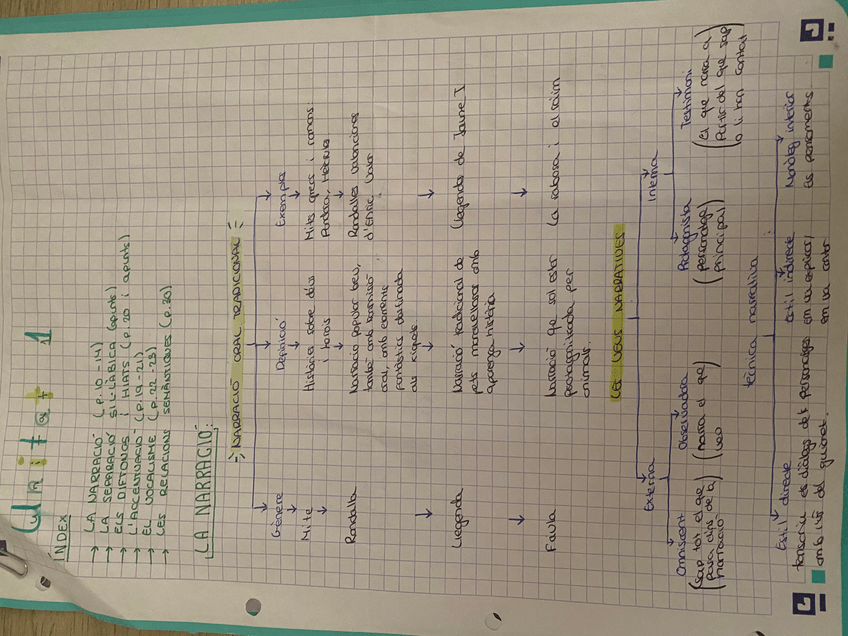 Unitat 1
ÍNDEX
→ LA NARRACIÓ (p.10-14)
→ LA SEPARACIÓ SIL·LÀBICA (apunts)
→ ELS DIFTONGS I HIATS (p.20 i apunts)
→ L'ACCENTUACIÓ (p.19-21)
→ EL VOCALISME (p.22-23)
→ LES RELACIONS SEMÀNTIQUES (p.30)
LA NARRACIÓ:
NARRACIÓ ORAL TRADICIONAL
Gènere Definició Exemple
Mite Història sobre déus i herois Mites grecs i romans
Pandora, Hèrcules
Rondalla Narració popular breu,
també amb transmissió
oral, amb contingut
fantàstic destinada
als xiquets. Rondalles valencianes
d'Enric Valor
Llegenda Narració tradicional de
fets meravellosos amb
aparença històrica Llegendes de Jaume I
Faula Narració que sol estar
protagonitzada per
animals. La rabosa i el raïm
LES VEUS NARRATIVES
Externa Interna
Omniscient
(sap tot el que
passa dins de la
narració)
Observadora
(narra el que
veu)
Protagonista
(personatge
principal)
Testimoni
(El que narra a
partir del que sap
o li han contat)
tècnica narrativa
Estil directe
transcriu els diàlegs dels personatges
amb l'ús del guionet.
Estil indirecte
em va explicar/
em va contar
Monòleg interior
els pensaments